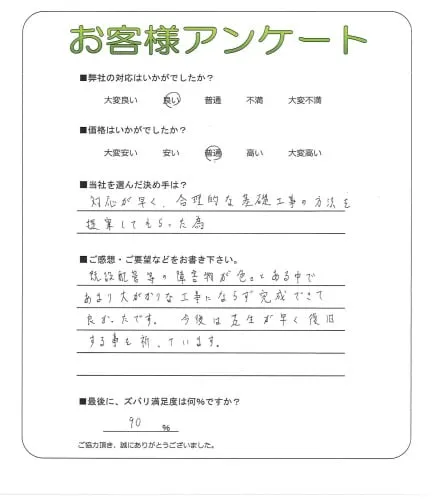 お客様アンケート
■弊社の対応はいかがでしたか？
大変良い 良い 普通 不満 大変不満
■価格はいかがでしたか？
大変安い 安い 普通 高い 大変高い
■当社を選んだ決め手は？
対応が早く、合理的な基礎工事の方法を
提案してもらった為
■ご感想・ご要望などをお書き下さい。
既設配管等の障害物が色々とある中で
あまり大がかりな工事にならず完成できて
良かったです。 今後は芝生が早く復旧
する事を祈っています。
■最後に、ズバリ満足度は何％ですか？
90 ％
ご協力頂き、誠にありがとうございました。